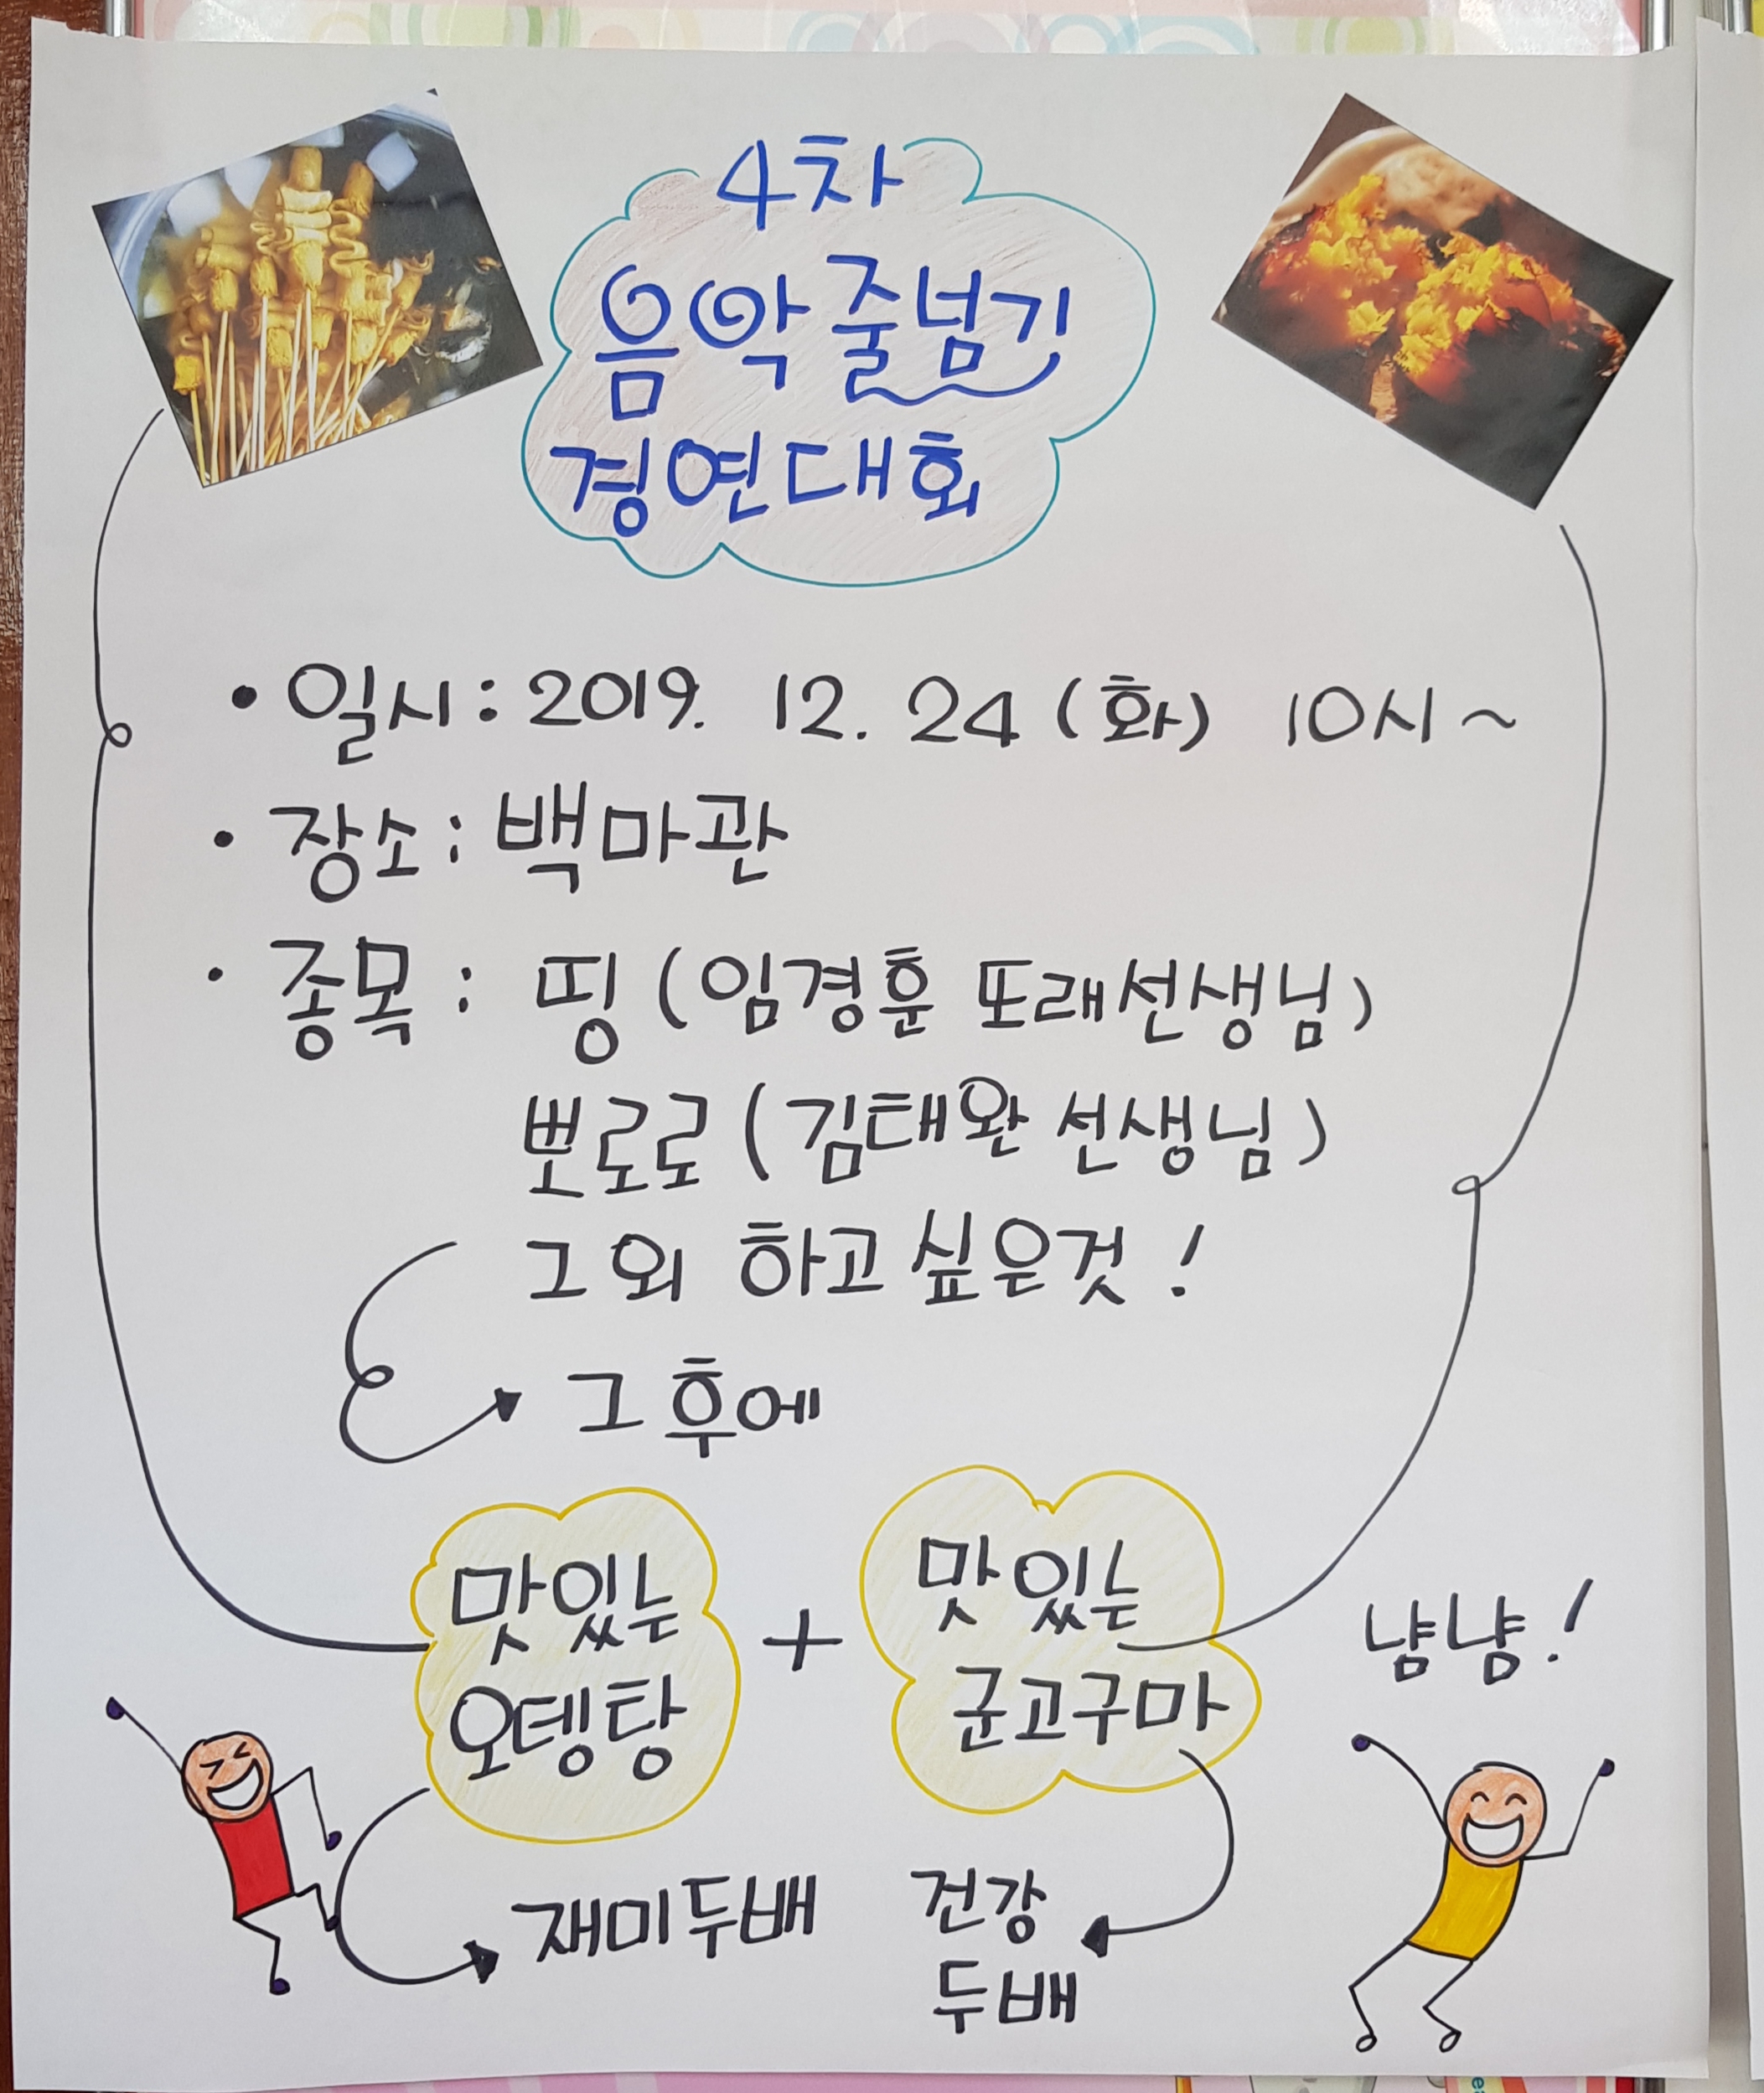 4차
음악줄넘기
경연대회
• 일시 : 2019. 12. 24 (화) 10시~
• 장소 : 백마관
• 종목 : 띵 (임경훈 또래선생님)
뽀로로 (김태완 선생님)
그 외 하고 싶은것!
그 후에
맛있는
오뎅탕
+
맛있는
군고구마
냠냠!
재미두배
건강
두배